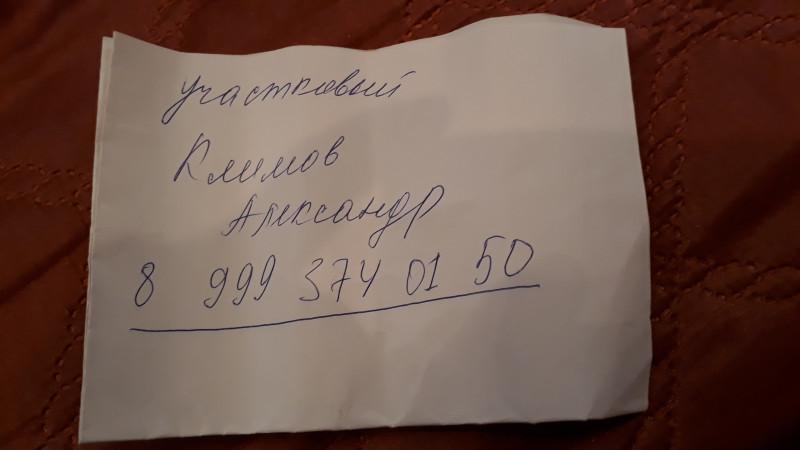 участковый
Климов
Александр
8 999 374 01 50